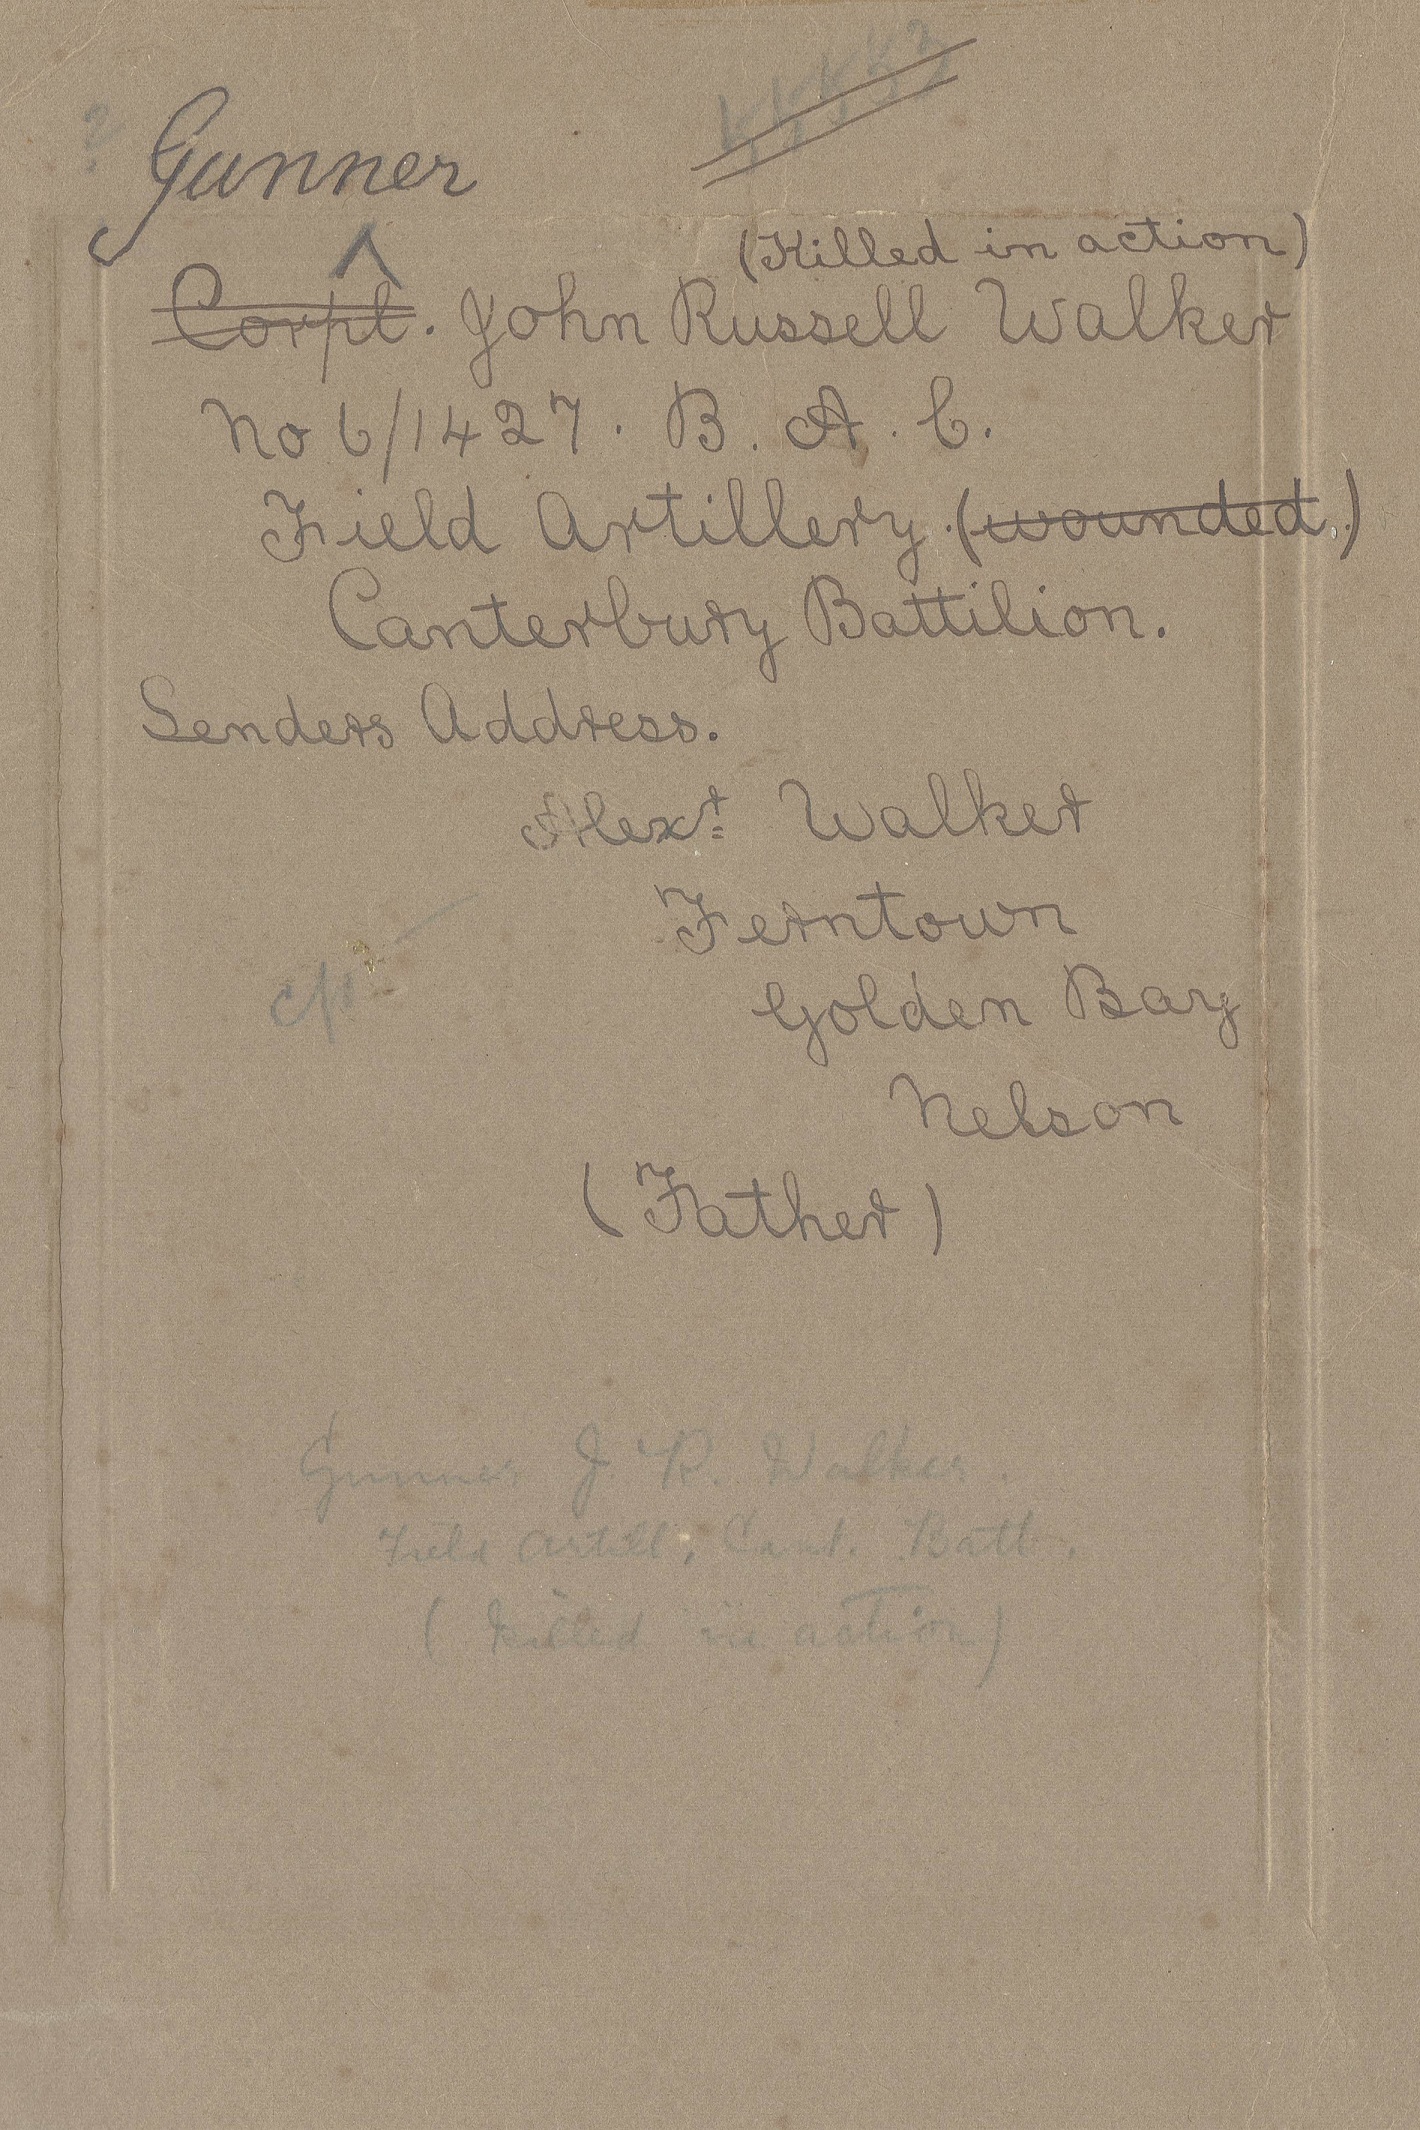 ?
Gunner
(Killed in action)
Corpl. John Russell Walker
No 6/1427. B. A. C.
Field Artillery. (wounded.)
Canterbury Battilion.
Senders Address.
Alexr. Walker
Ferntown
Golden Bay
Nelson
(Father)
Gunner J. R. Walker.
Field Artill, Cant. Batt.
(Killed in action)